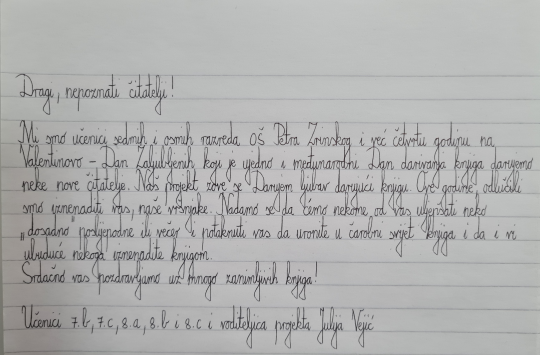 Dragi, nepoznati čitatelju!
Mi smo učenici sedmih i osmih razreda OŠ Petra Zrinskog i već četvrtu godinu na
Valentinovo – Dan Zaljubljenih koji je ujedno i međunarodni Dan darivanja knjiga darujemo
neke nove čitatelje. Naš projekt zove se Darujem ljubav darujući knjigu. Ove godine odlučili
smo iznenaditi vas, naše vršnjake. Nadamo se da ćemo nekome od vas uljepšati neko
„dosadno" poslijepodne ili večer i potaknuti vas da uronite u čarobni svijet knjiga i da i vi
ubuduće nekoga iznenadite knjigom.
Srdačno vas pozdravljamo uz mnogo zanimljivih knjiga!
Učenici 7.b, 7.c, 8.a, 8.b i 8.c i voditeljica projekta Julija Vejić